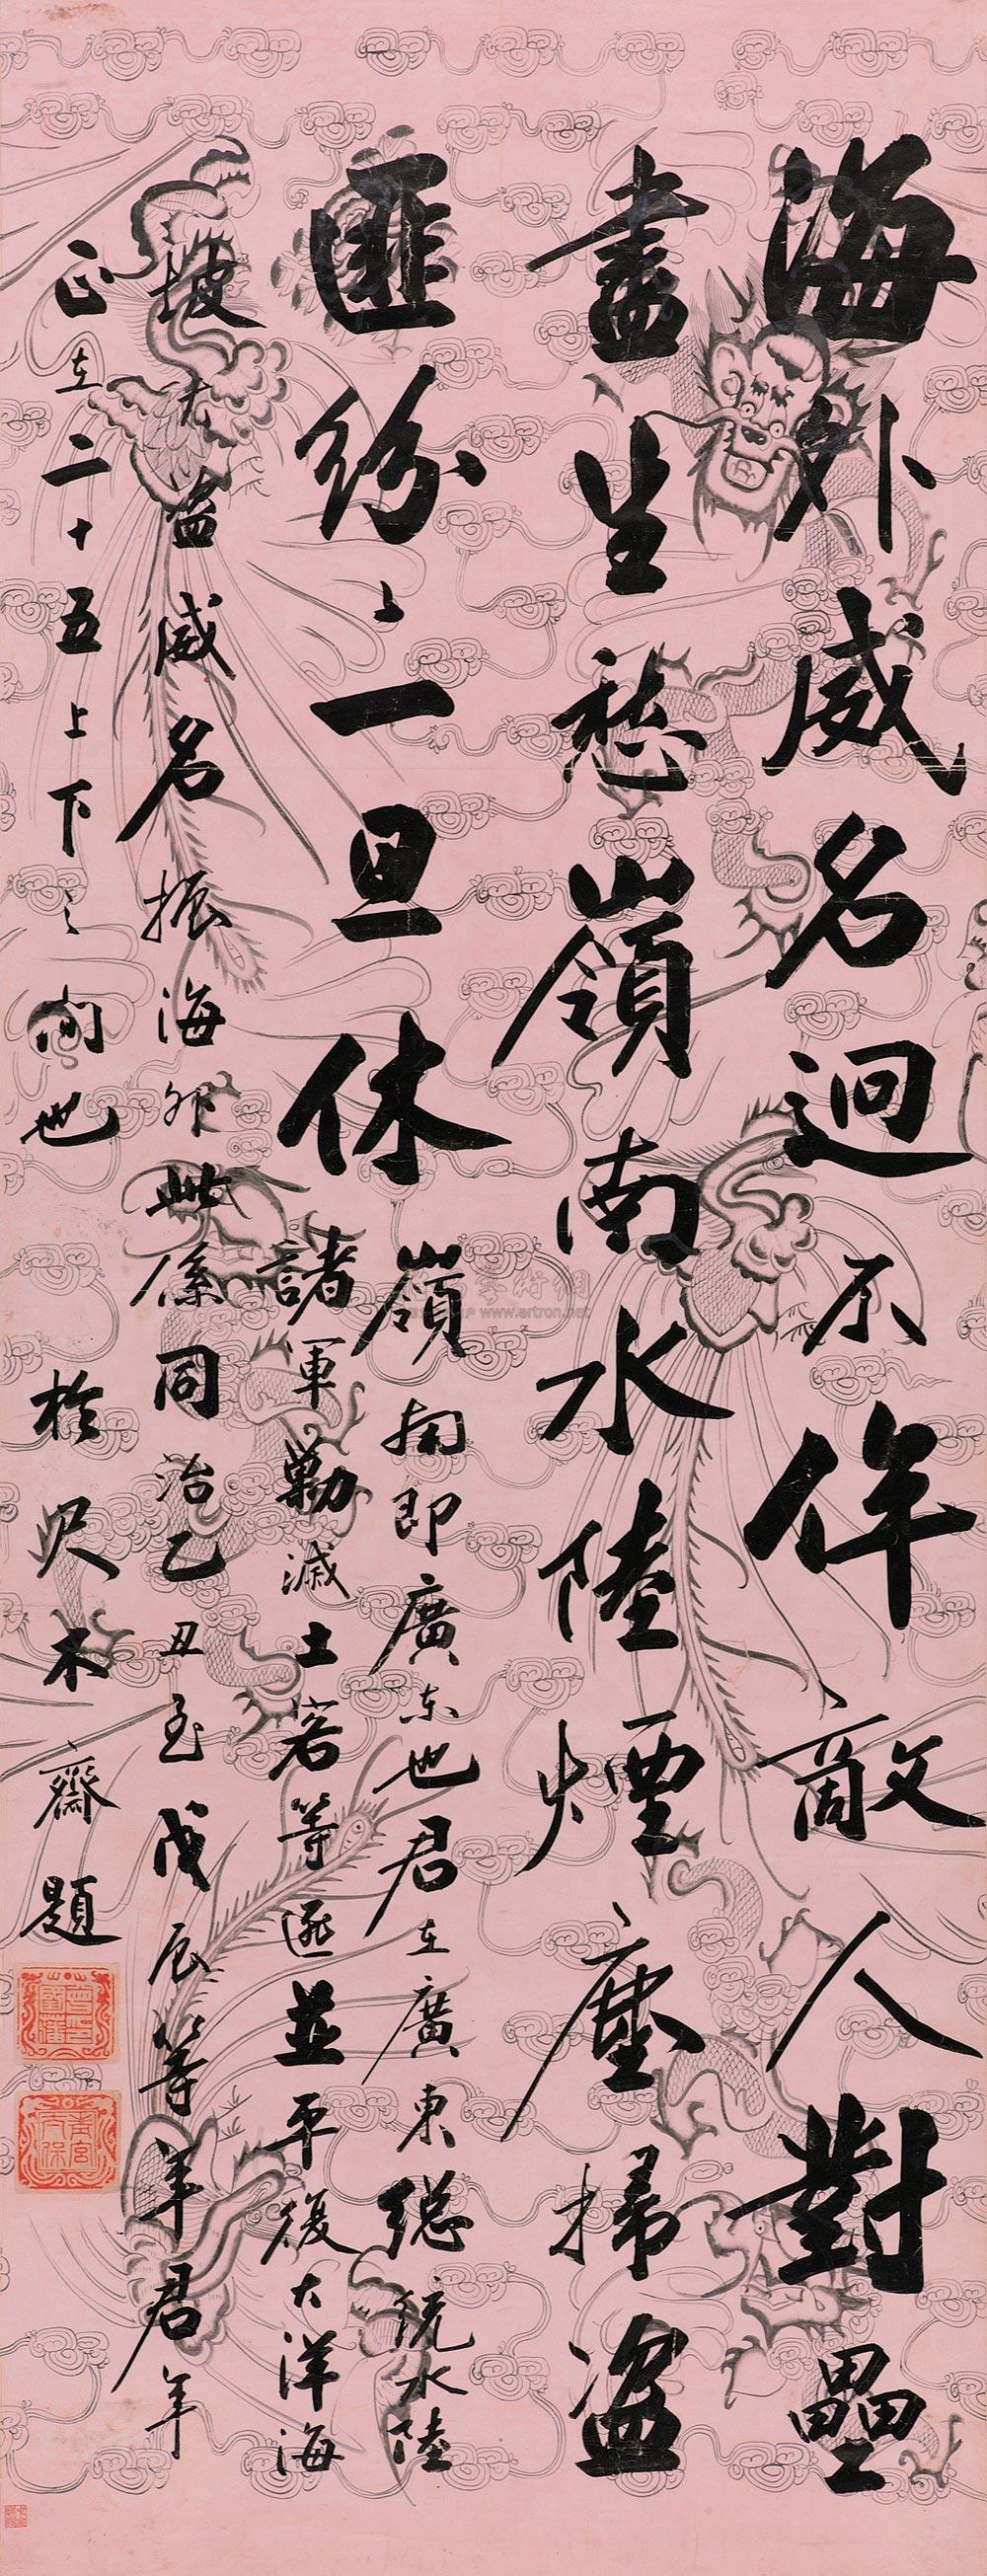 海外威名迥不侔敵人對壘
盡生愁嶺南水陸煙塵掃盜
匪紛〻一旦休
嶺南即廣東也君在廣東總統水陸
諸軍勦滅土客等匪並平復大洋海
坡大盜威名振海外此係同治乙丑至戊辰等年君年
正在二十五上下之間也 於尺木齋題
www.artron.net